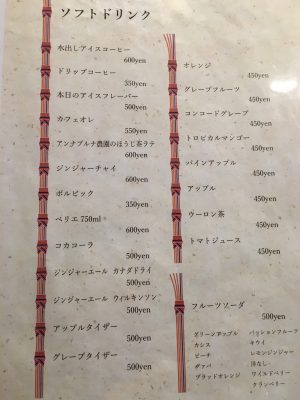 ソフトドリンク
水出しアイスコーヒー
600yen
ドリップコーヒー
350yen
本日のアイスフレーバー
500yen
カフェオレ
550yen
アンナプルナ農園のほうじ茶ラテ
600yen
ジンジャーチャイ
600yen
ボルビック
350yen
ペリエ 750ml
600yen
コカコーラ
500yen
ジンジャーエール カナダドライ
500yen
ジンジャーエール ウィルキンソン
500yen
アップルタイザー
500yen
グレープタイザー
500yen
オレンジ
450yen
グレープフルーツ
450yen
コンコードグレープ
450yen
トロピカルマンゴー
450yen
パインアップル
450yen
アップル
450yen
ウーロン茶
450yen
トマトジュース
450yen
フルーツソーダ
500yen
グリーンアップル パッションフルーツ
カシス キウイ
ピーチ レモンジンジャー
グァバ 洋なし
ブラッドオレンジ ワイルドベリー
クランベリー